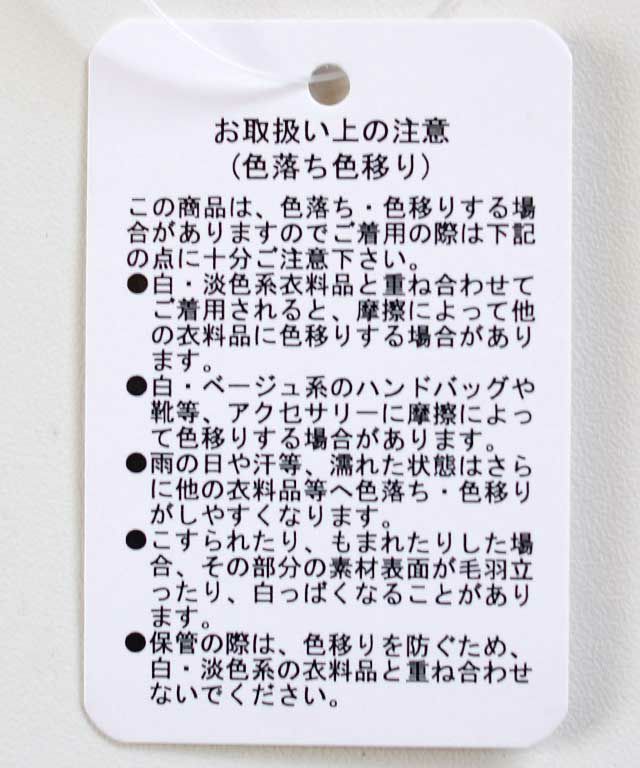 お取扱い上の注意
(色落ち色移り)
この商品は、色落ち・色移りする場
合がありますのでご着用の際は下記
の点に十分ご注意下さい。
●白・淡色系衣料品と重ね合わせて
ご着用されると、摩擦によって他
の衣料品に色移りする場合があり
ます。
●白・ベージュ系のハンドバッグや
靴等、アクセサリーに摩擦によっ
て色移りする場合があります。
●雨の日や汗等、濡れた状態はさら
に他の衣料品等へ色落ち・色移り
がしやすくなります。
●こすられたり、もまれたりした場
合、その部分の素材表面が毛羽立
ったり、白っぱくなることがあり
ます。
●保管の際は、色移りを防ぐため、
白・淡色系の衣料品と重ね合わせ
ないでください。